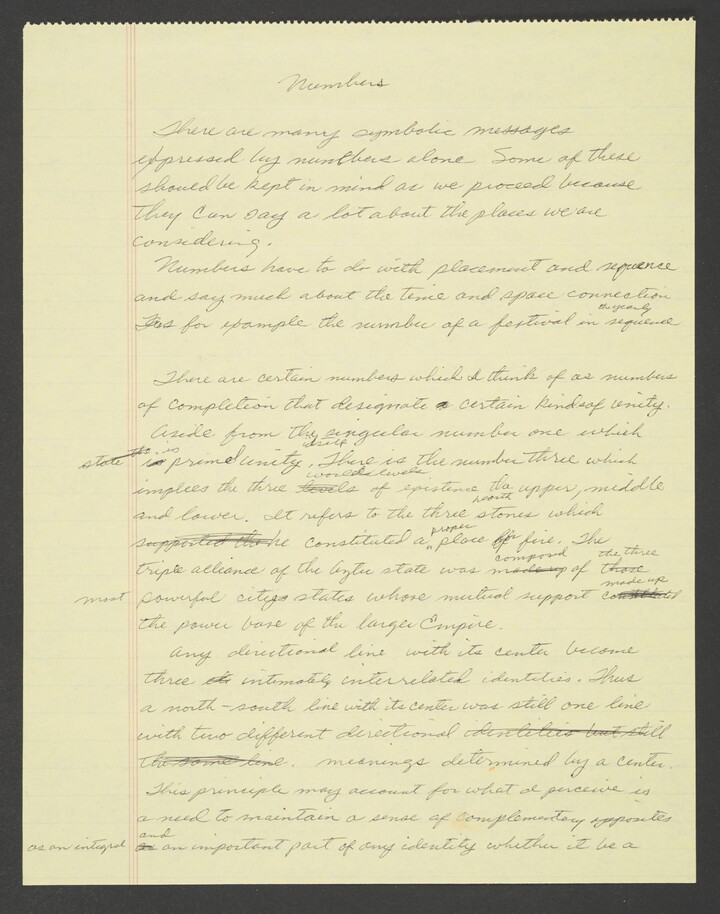 Numbers
There are many symbolic messages
expressed by numbers alone Some of these
should be kept in mind as we proceed because
they can say a lot about the places we are
considering.
Numbers have to do with placement and sequence
and say much about the time and space connection
the yearly
as for example the number of a festival in sequence
There are certain numbers which I think of as numbers
of completion that designate a certain kind of unity.
Aside from the singular number one which
itself
state is prime unity. There is the number three which
worlds levels
implies the three levels of existence the upper, middle
hearth
and lower. It refers to the three stones which
proper for
supported the constituted a place of fire. The
composed the three
triple alliance of the Aztec state was made up of those
made up
most powerful city states whose mutual support constituted
the power base of the larger Empire.
Any directional line with its center become
three intimately interrelated identities. Thus
a north-south line with its center was still one line
with two different directional identities but still
the same line. meanings determined by a center.
This principle may account for what I perceive is
a need to maintain a sense of complementary opposites
and
as an integral as an important part of any identity whether it be a